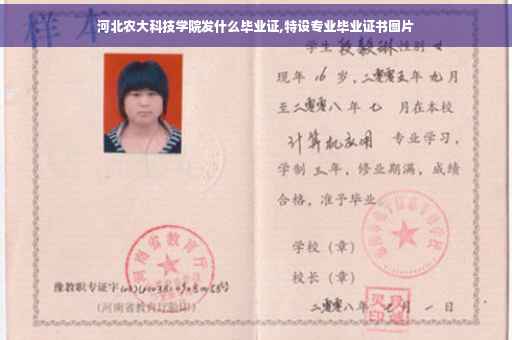 河北农大科技学院发什么毕业证,特设专业毕业证书图片
样本
学生段毅琳性别女
现年16岁,二零零五年九月
至二零零八年七月在本校
计算机应用专业学习,
学制三年,修业期满,成绩
合格,准予毕业
学校(章)
河南省教育厅
校长(章)
豫教职专证字
(河南省教育厅验印)
二零零八年七月一日